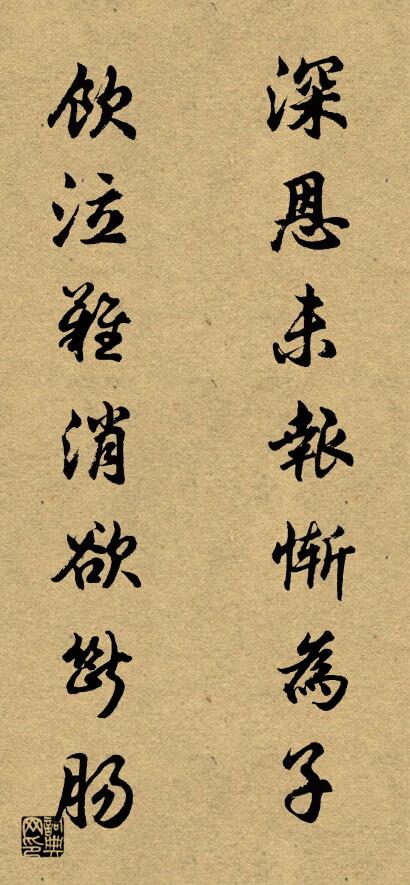 深恩未報慚為子
飲泣難消欲斷腸
詞典网印